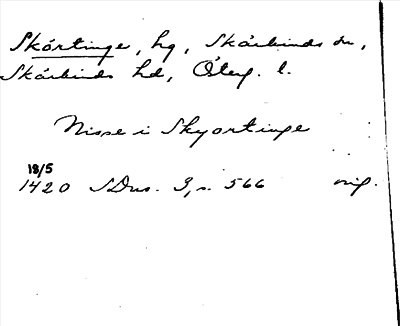 Skörtinge, hg, Skärkinds sn,
Skärkinds hd, Östg. l.
Nisse i Skyortinge
18/5
1420 SDns. 3, s. 566 orig.